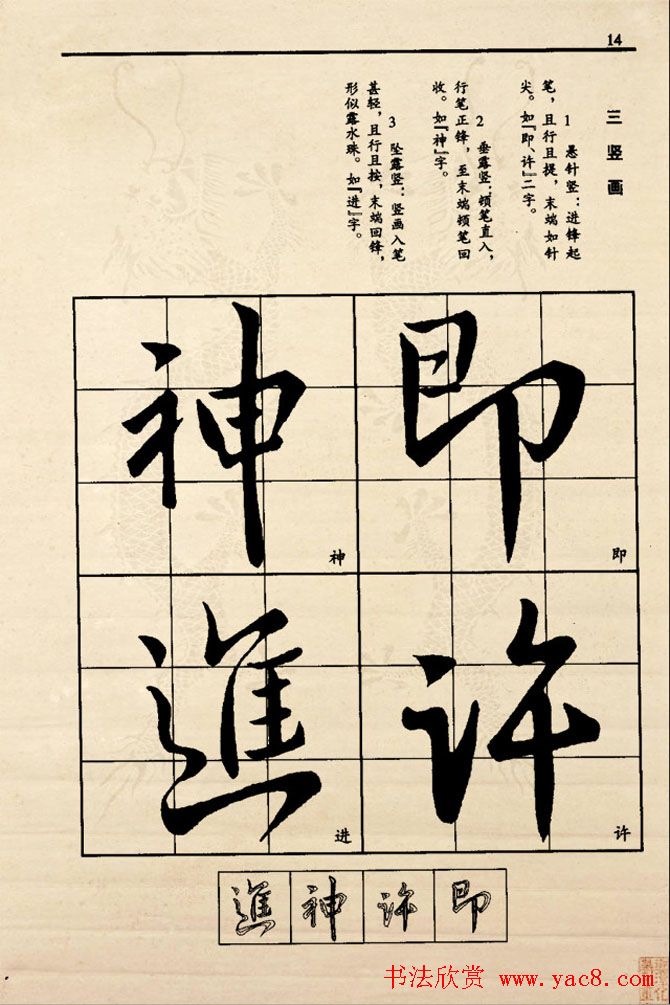 14
三 竖 画
1 悬针竖：进锋起
笔，且行且提，末端如针
尖。如『即、许』二字。
2 垂露竖：顿笔直入，
行笔正锋，至末端顿笔回
收。如『神』字。
3 坠露竖：竖画入笔
甚轻，且行且按，末端回锋，
形似露水珠。如『进』字。
即
即
许
许
神
神
進
进
即
许
神
進
书法欣赏 www.yac8.com